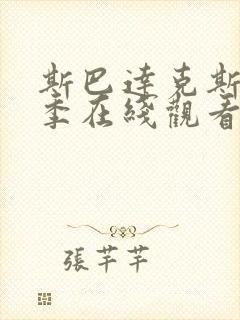 斯巴達克斯
季在綫觀看
張芊芊